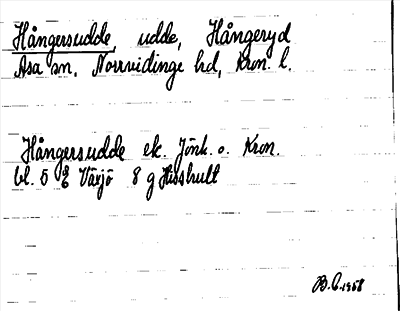 Hångersudde, udde, Hångeryd
Asa sn, Norrvidinge hd, Kron. l.
Hångersudde ek. Jönk. o. Kron.
bl. 5 E Växjö 8 g Hisshult
1958